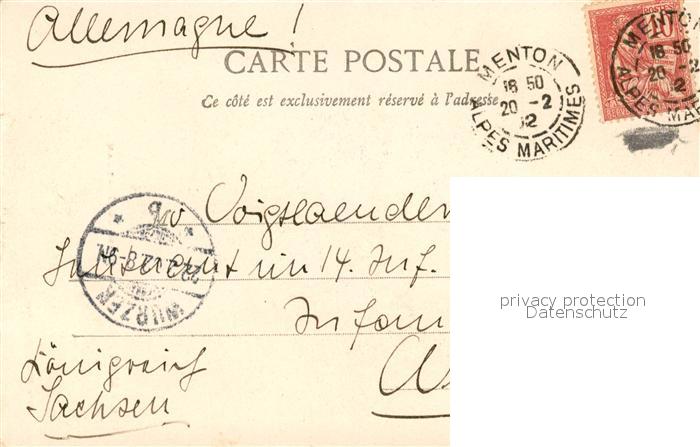 Allemagne !
CARTE POSTALE
Ce côté est exclusivement réservé à l'adresse
MENTON
18 50
20 -2
02
ALPES MARITIMES
10
MENTON
18 50
20 -2
2
ALPES MAR
Voigtlaender
im 14. Inf.
WURZEN
Königreich
Sachsen
privacy protection
Datenschutz